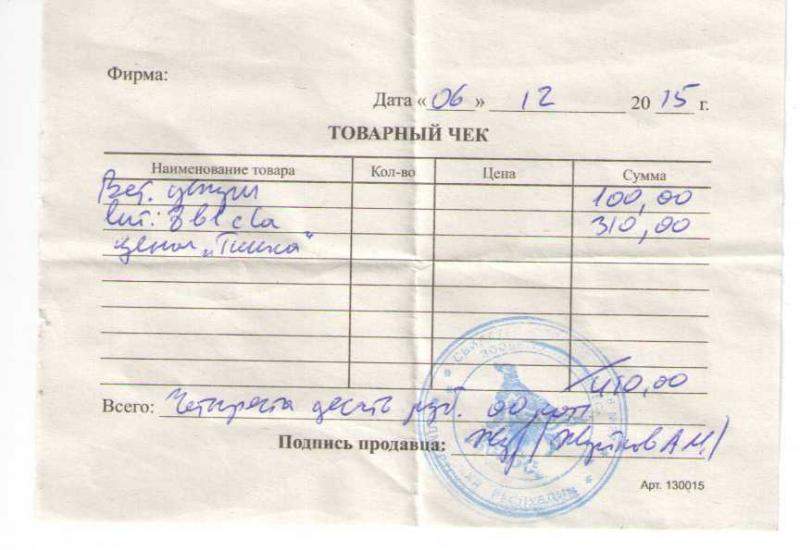 Фирма:
Дата «06» 12 2015 г.
ТОВАРНЫЙ ЧЕК
Наименование товара Кол-во Цена Сумма
Вет. 100,00
310,00
щенок „Тишка“
410,00
Всего: Четыреста десять руб. 00 коп.
Подпись продавца:
РЕСПУБЛИКА
Арт. 130015